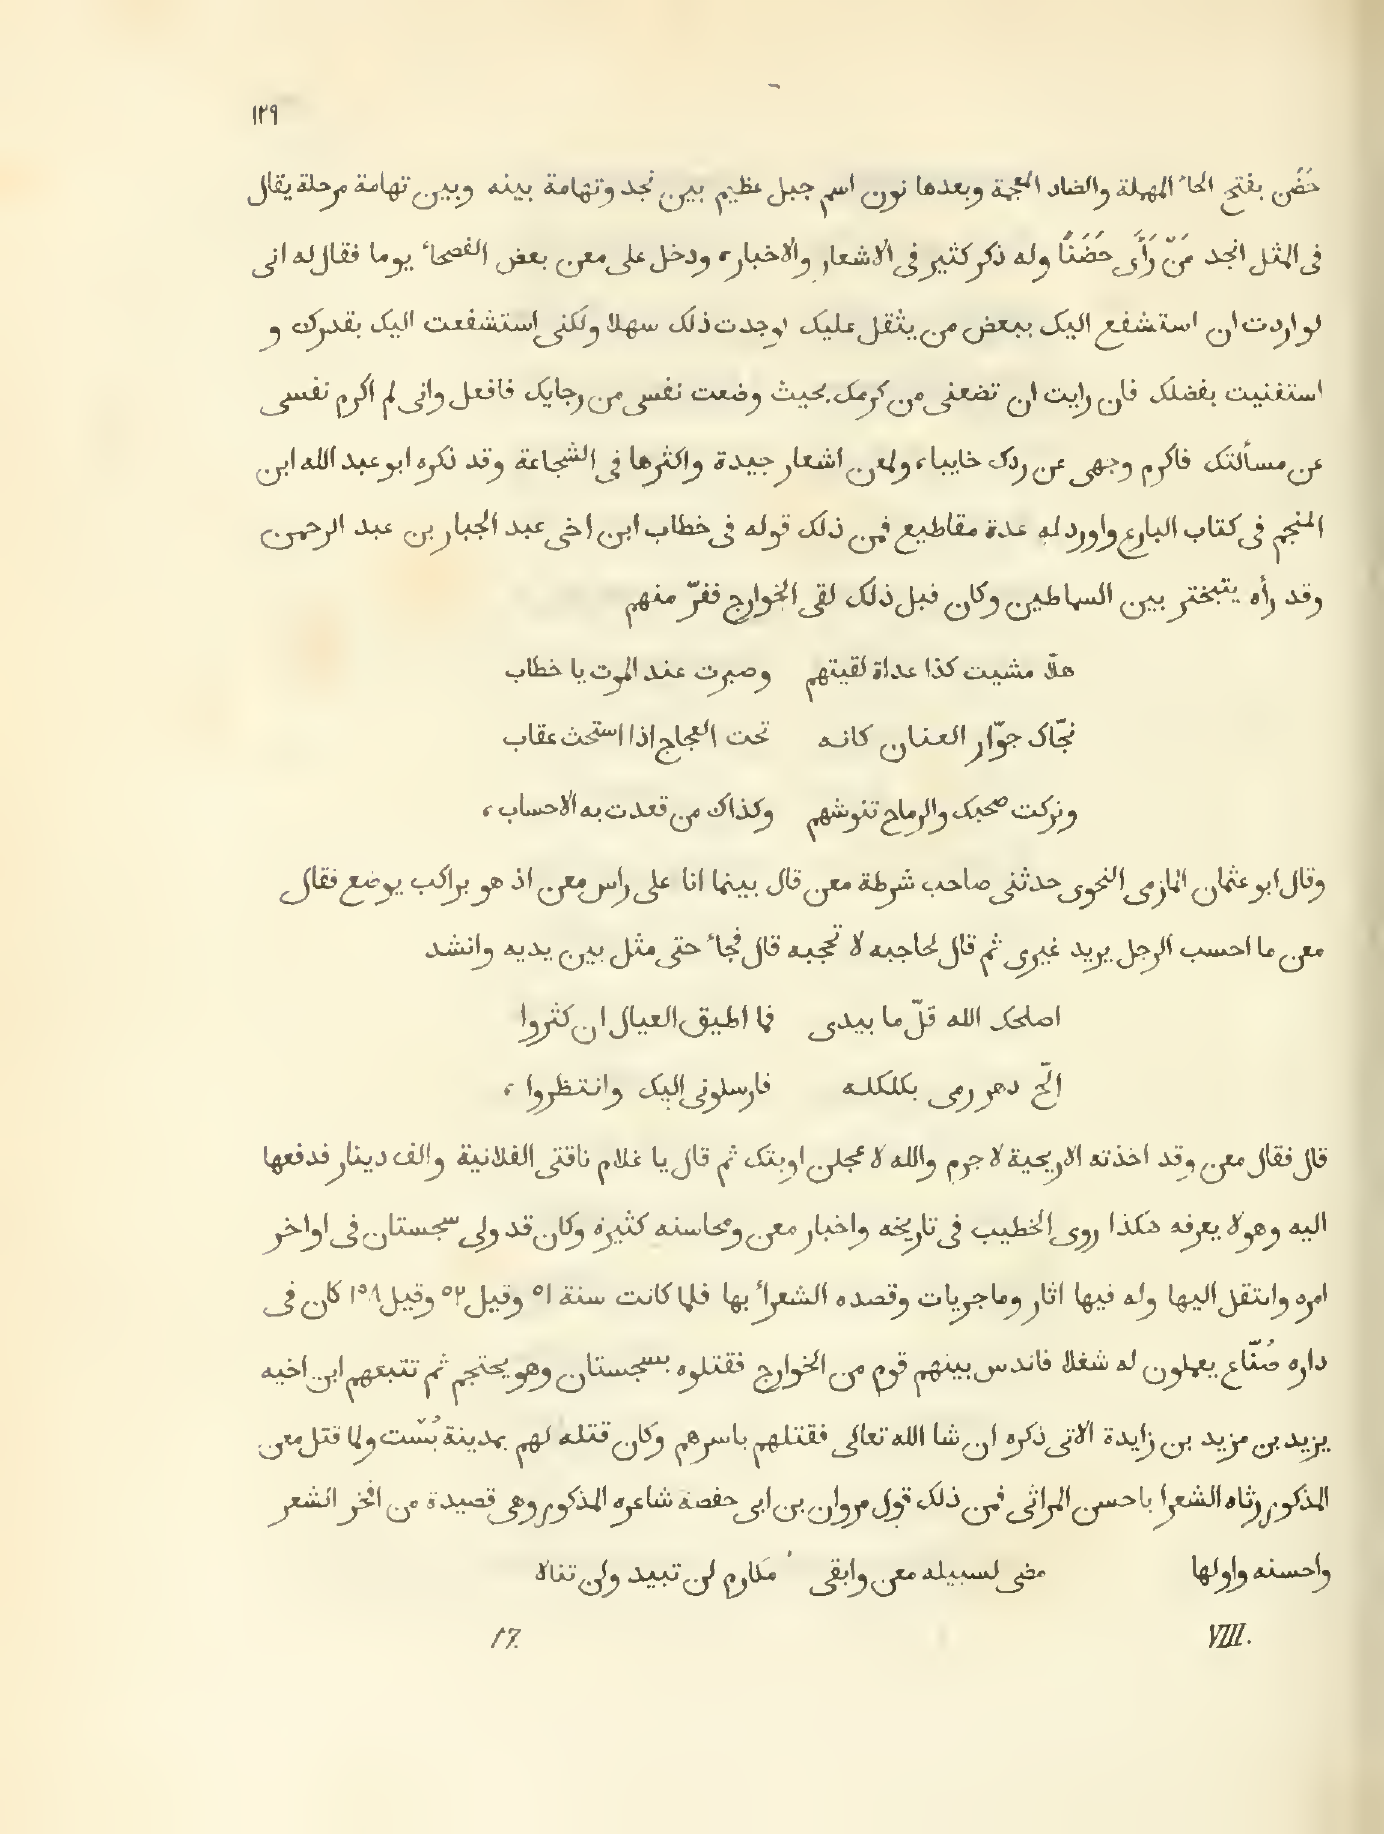 ١٢٩
حَضَن بفتح الحاء المهملة والضاد المعجمة وبعدها نون اسم جبل عظيم بين نجد وتهامة بينه وبين تهامة مرحلة يقال
فى المثل انجد مَنْ رَأَى حَضَنًا وله ذكر كثير فى الاشعار والاخبار، ودخل على معن بعض الفصحاء يوما فقال له انى
لو اردت ان استشفع اليك ببعض من يثقل عليك لوجدت ذلك سهلا ولكنى استشفعت اليك بقدرك و
استغنيت بفضلك فان رايت ان تضعنى من كرمك بحيث وضعت نفسى من رجايك فافعل وانى لم اكرم نفسى
عن مسألتك فاكرم وجهى عن ردك خايبا، ولمعن اشعار جيدة واكثرها فى الشجاعة وقد ذكره ابو عبد الله ابن
المنجم فى كتاب البارع واورد له عدة مقاطيع فمن ذلك قوله فى خطاب ابن اخى عبد الجبار بن عبد الرحمن
وقد رأه يتبختر بين السماطين وكان قبل ذلك لقى الخوارج ففرّ منهم
هلّا مشيت كذا غداة لقيتهم وصبرت عند الموت يا خطاب
نجّاك خوّار العنان كانه تحت العجاج اذا استحث عقاب
وتركت صحبك والرماح تنوشهم وكذاك من قعدت به الاحساب،
وقال ابو عثمان المازمى النحوى حدثنى صاحب شرطة معن قال بينما انا على راس معن اذ هو براكب يوضع فقال
معن ما احسب الرجل يريد غيرى ثم قال لحاجبه لا تحجبه قال فجاء حتى مثل بين يديه وانشد
اصلحك الله قلّ ما بيدى فما اطيق العيال ان كثروا
الحّ دهر رمى بكلكله فارسلونى اليك وانتظروا،
قال فقال معن وقد اخذته الاريحية لا جرم والله لاعجلن اوبتك ثم قال يا غلام ناقتى الفلانية والف دينار فدفعها
اليه وهو لا يعرفه هكذا روى الخطيب فى تاريخه واخبار معن ومحاسنه كثيرة وكان قد ولى سجستان فى اواخر
امره وانتقل اليها وله فيها اثار وماجريات وقصده الشعرأ بها فلما كانت سنة ١٥١ وقيل ٥٢ وقيل ١٥٨ كان فى
داره صُنّاع يعملون له شغلا فاندس بينهم قوم من الخوارج فقتلوه بسجستان وهو يحتجم ثم تتبعهم ابن اخيه
يزيد بن مزيد بن زايدة الاتى ذكره ان شا الله تعالى فقتلهم باسرهم وكان قتله لهم بمدينة بُسْت ولما قتل معن
المذكور رثاه الشعرا باحسن المراثى فمن ذلك قول مروان بن ابى حفصة شاعره المذكور وهى قصيدة من افخر الشعر
واحسنه واولها مضى لسبيله معن وابقى مكارم لن تبيد ولن تنالا
VIII. 17.